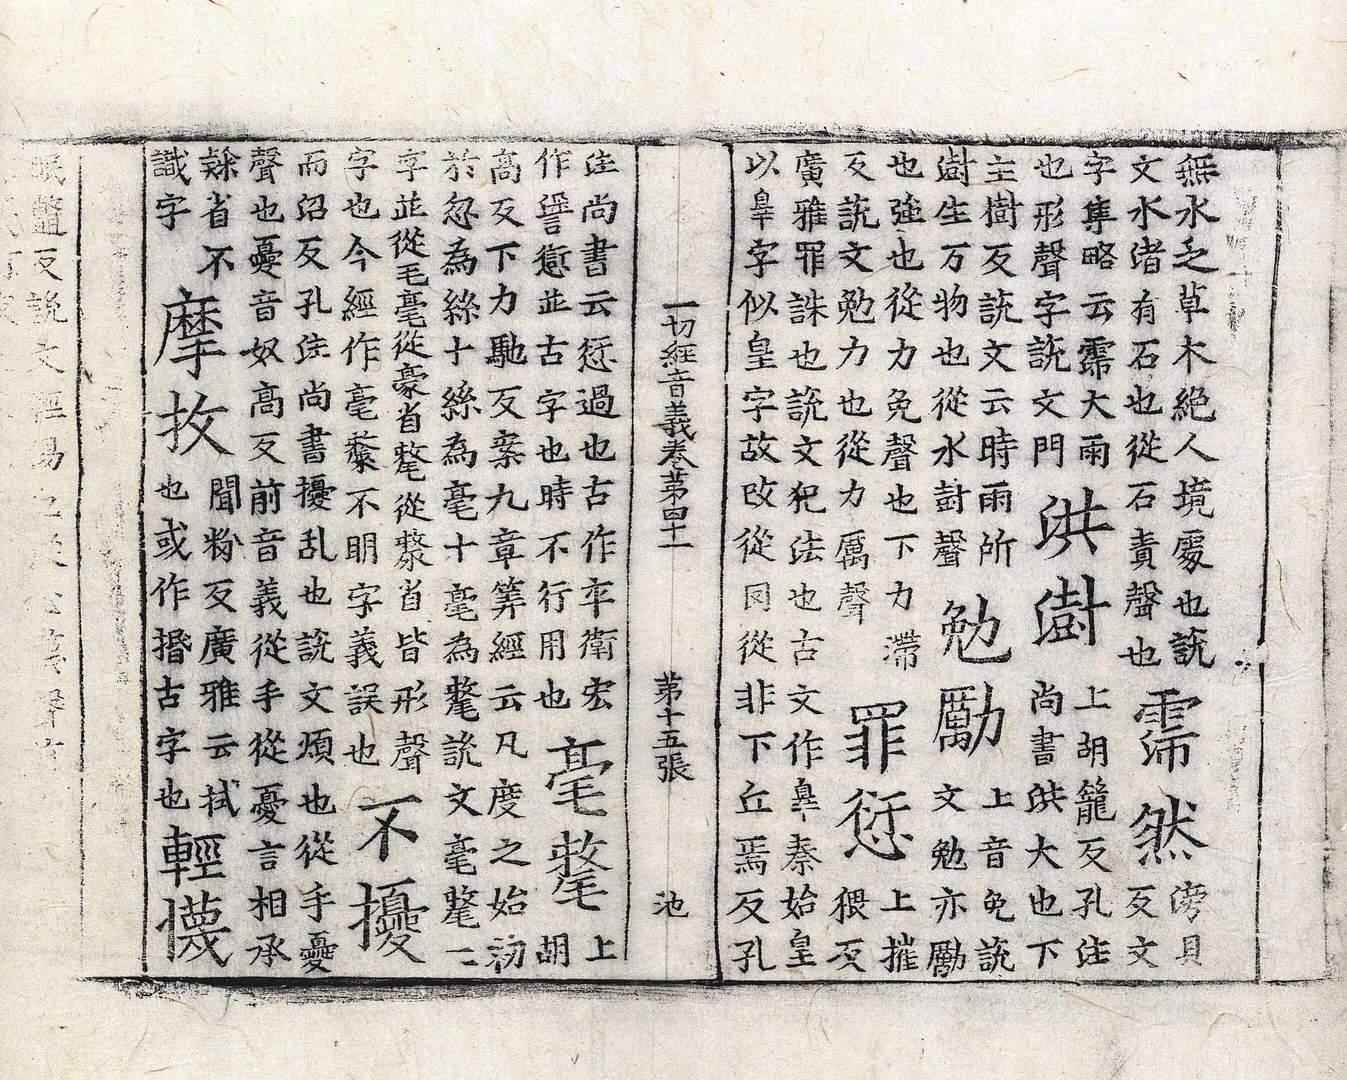 無水乏草木絕人境處也說
文水渚有石也從石責聲也
霈然
滂貝
反文
字集略云霈大雨
也形聲字說文門
洪澍
上胡籠反孔注
尚書洪大也下
主樹反說文云時雨所
澍生万物也從水尌聲
勉勵
上音免說
文勉亦勵
也強也從力免聲也下力滯
反說文勉力也從力厲聲
罪愆
上摧
猥反
廣雅罪誅也說文犯法也古文作辠秦始皇
以辠字似皇字故改從罔從非下丘焉反孔
一切經音義卷苐四十一 苐十五張 池
注尚書云愆過也古作䇂衛宏
作諐並古字也時不行用也
毫氂
上
胡
高反下力馳反案九章筭經云凡度之始初
於忽為絲十絲為毫十毫為氂說文毫氂二
字並從毛毫從豪省氂從省皆形聲
字也今經作毫不明字義誤也
不擾
而沼反孔注尚書擾乱也說文煩也從手憂
聲也憂音奴高反前音義從手從憂言相承
隸省不
識字
摩抆
聞粉反廣雅云拭
也或作捪古字也
輕懱
眠鼈反說文輕易